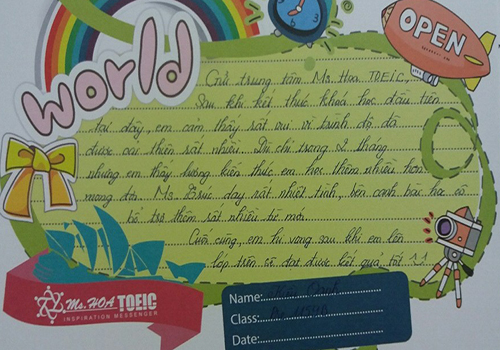 World
OPEN
Gửi trung tâm Ms. Hoa TOEIC,
Sau khi kết thúc khoá học đầu tiên
tại đây, em cảm thấy rất vui vì trình độ đã
được cải thiện rất nhiều. Dù chỉ trong 2 tháng
nhưng em thấy lượng kiến thức em học thêm nhiều hơn
mong đợi. Ms. dạy rất nhiệt tình, bên cạnh bài học còn
bổ trợ thêm rất nhiều từ mới.
Cuối cùng, em hi vọng sau khi em lên
lớp trên sẽ đạt được kết quả tốt ^^
Ms. HOA TOEIC
INSPIRATION MESSENGER
Name:
Class:
Date: